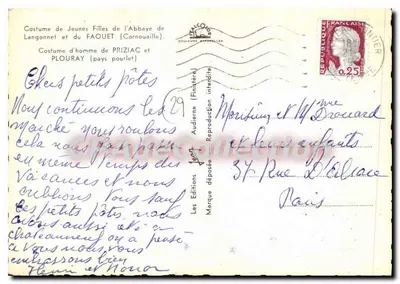 Costume de Jeunes Filles de l'Abbaye de
Langonnet et du FAOUET (Cornouaille).
Costume d'homme de PRIZIAC et
PLOURAY (pays pourlet)
Chers petits pôtes
Nous continuons les 29
marche nous roulons
cela nous
en même temps des
vacances et nous
oublions vous sauf
les petits pôtes nous
avons aussi été à
chateauneuf on a pensé
à vous nous vous
embrassons bien
Henri et
Les Editions Audierne (Finistère)
Marque déposée Reproduction interdite
REPUBLIQUE
FRANÇAISE
0,25
Monsieur et Mme Drouard
et leurs enfants
37 Rue D'Alsace
Paris